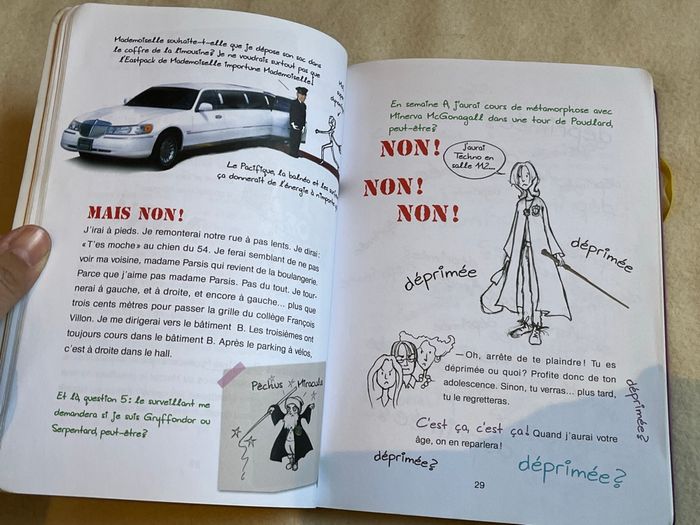 Mademoiselle souhaite-t-elle que je dépose son sac dans
le coffre de la limousine? Je ne voudrais surtout pas que
l'Eastpack de Mademoiselle importune Mademoiselle!
Le Pacifique, la balnéo et les
ça donnerait de l'énergie à n'importe
MAIS NON!
J'irai à pieds. Je remonterai notre rue à pas lents. Je dirai :
« T'es moche » au chien du 54. Je ferai semblant de ne pas
voir ma voisine, madame Parsis qui revient de la boulangerie.
Parce que j'aime pas madame Parsis. Pas du tout. Je tour-
nerai à gauche, et à droite, et encore à gauche... plus que
trois cents mètres pour passer la grille du collège François
Villon. Je me dirigerai vers le bâtiment B. Les troisièmes ont
toujours cours dans le bâtiment B. Après le parking à vélos,
c'est à droite dans le hall.
Et là, question 5 : le surveillant me
demandera si je suis Gryffondor ou
Serpentard, peut-être?
Pèchus Miracula
En semaine A j'aurai cours de métamorphose avec
Minerva McGonagall dans une tour de Poudlard,
peut-être?
NON!
NON!
NON!
J'aurai
Techno en
salle 112...
déprimée
déprimée
— Oh, arrête de te plaindre! Tu es
déprimée ou quoi? Profite donc de ton
adolescence. Sinon, tu verras... plus tard,
tu le regretteras.
C'est ça, c'est ça! Quand j'aurai votre
âge, on en reparlera!
déprimée?
déprimée?
déprimée?
29